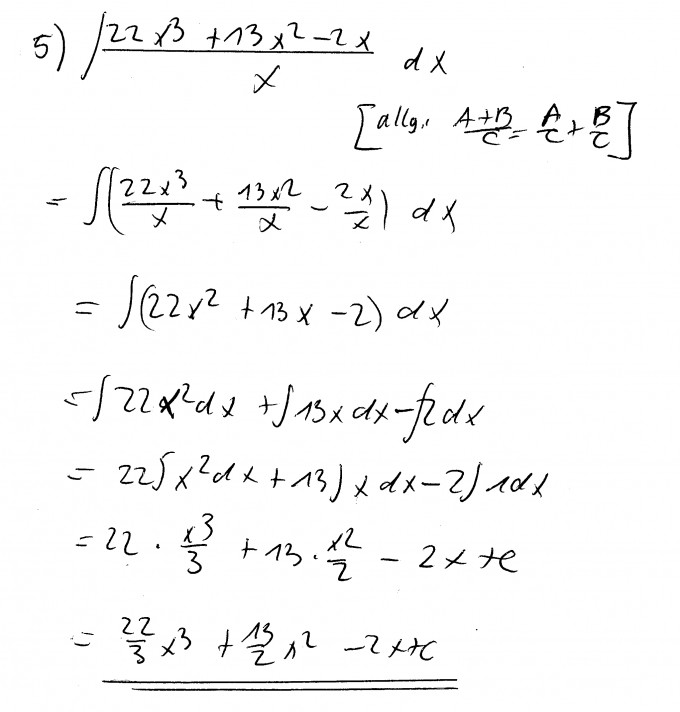 5) ∫ (22x³ + 13x² - 2x)/x dx
[allg.: (A+B)/C = A/C + B/C]
= ∫(22x³/x + 13x²/x - 2x/x) dx
= ∫(22x² + 13x - 2) dx
= ∫22x²dx + ∫13x dx - ∫2dx
= 22∫x²dx + 13∫x dx - 2∫1dx
= 22 · x³/3 + 13 · x²/2 - 2x + c
= 22/3 x³ + 13/2 x² - 2x + c